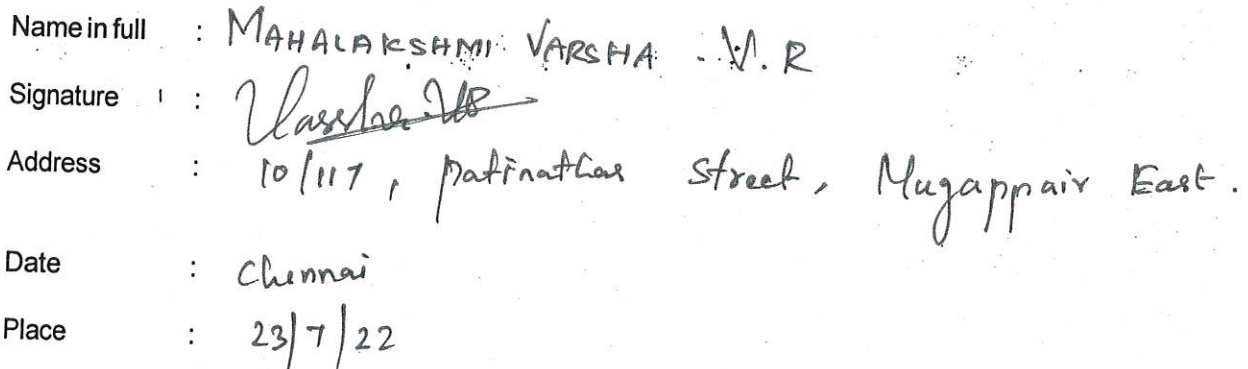 Name in full : MAHALAKSHMI VARSHA . V. R
Signature : Varsha.VR
Address : 10/117, Patinathar Street, Mugappair East.
Date : Chennai
Place : 23/7/22